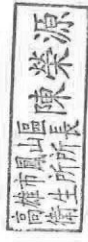 高雄市鳳山區
衛生所所長
陳榮源